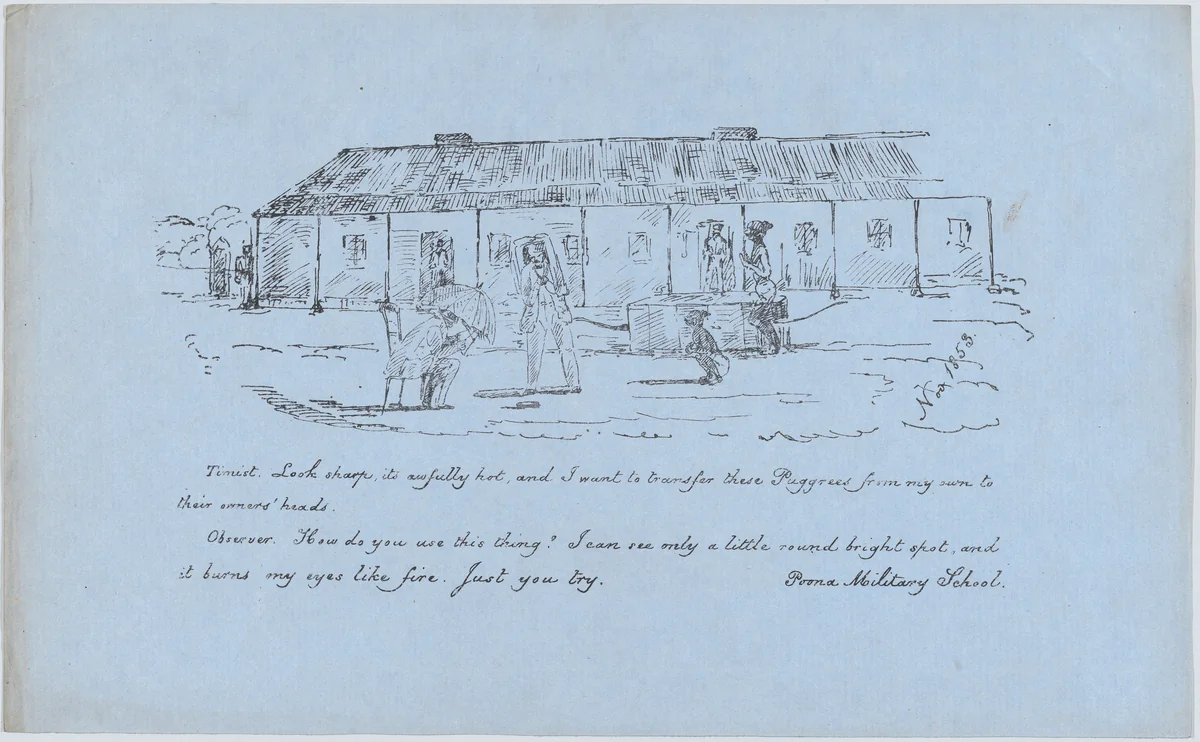 Nov 1853.
Timist. Look sharp, its awfully hot, and I want to transfer these Puggrees from my own to
their owners' heads.
Observer. How do you use this thing? I can see only a little round bright spot, and
it burns my eyes like fire. Just you try.
Poona Military School.